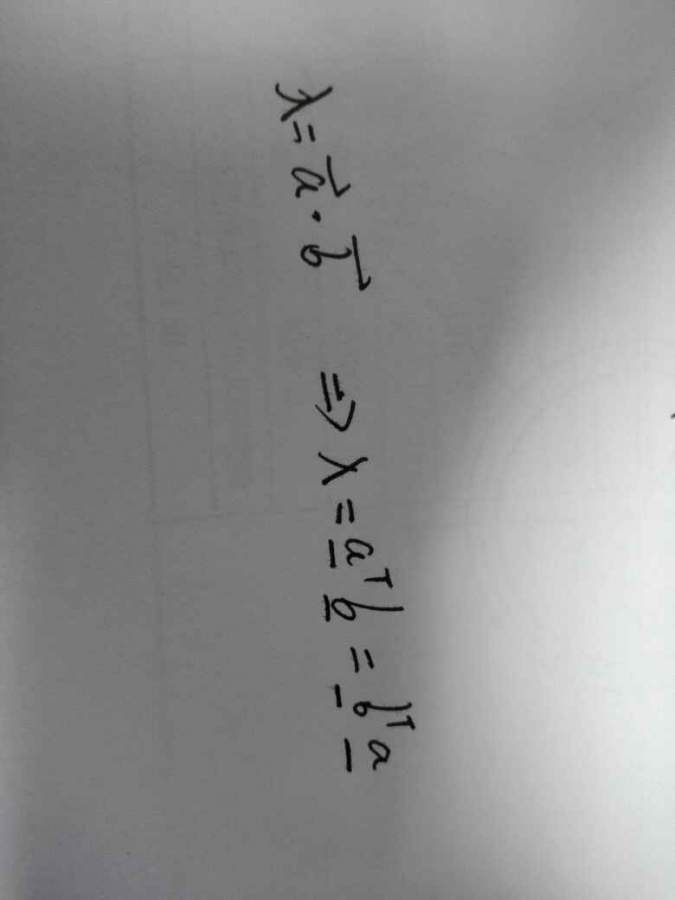 λ = a⃗ · b⃗ ⇒ λ = a̲ᵀ b̲ = b̲ᵀ a̲